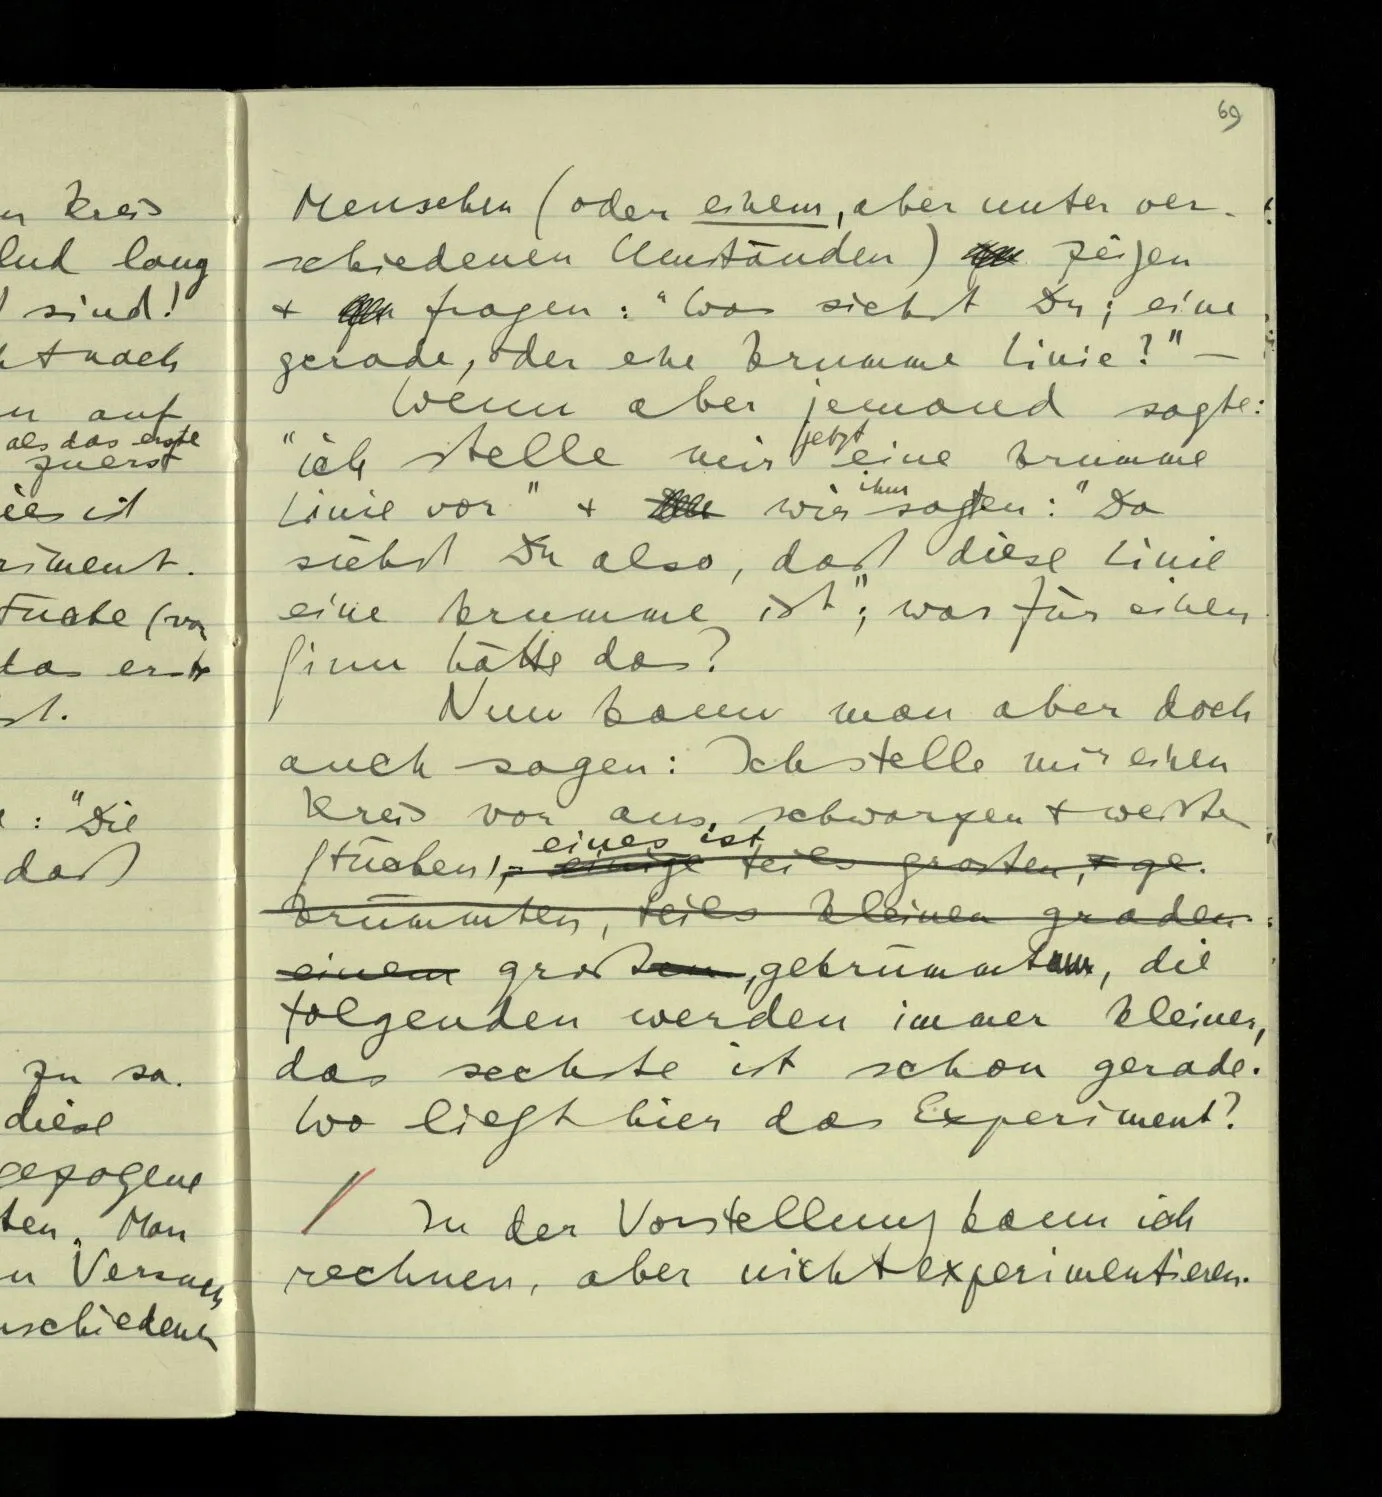 69
n Kreis
lud lang
sind!
ht nach
n auf
als das erste
zuerst
ies ist
riment.
Stücke (vo
das erste
st.
: "Die
daß
zu sa-
diese
gezogene
ten. Man
n Versuch
rschiedenen
Menschen (oder einem, aber unter ver-
schiedenen Umständen) zeigen
+ fragen: "Was siehst Du; eine
gerade, oder eine krumme Linie?" —
Wenn aber jemand sagte:
"ich stelle mir jetzt eine krumme
Linie vor" + wir ihm sagten: "Da
siehst Du also, daß diese Linie
eine krumme ist"; was für einen
Sinn hätte das?
Nun kann man aber doch
auch sagen: Ich stelle mir einen
Kreis vor aus schwarzen + weißen
eines ist
Stücken, einige teils großen, + ge-
krümmten, teils kleinen graden
einem großen, gekrümmt, die
folgenden werden immer kleiner,
das sechste ist schon gerade.
Wo liegt hier das Experiment?
In der Vorstellung kann ich
rechnen, aber nicht experimentieren.